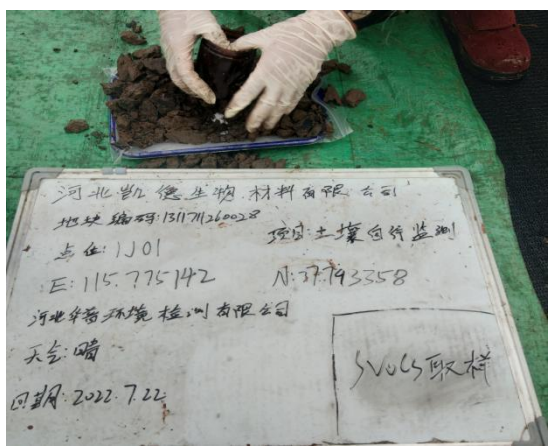 河北凯德生物材料有限公司
地块编码:1311711260028
点位:1J01
项目:土壤自行监测
E:115.775142
N:37.793358
河北华茵环境检测有限公司
天气:晴
SVOCS取样
日期:2022.7.22